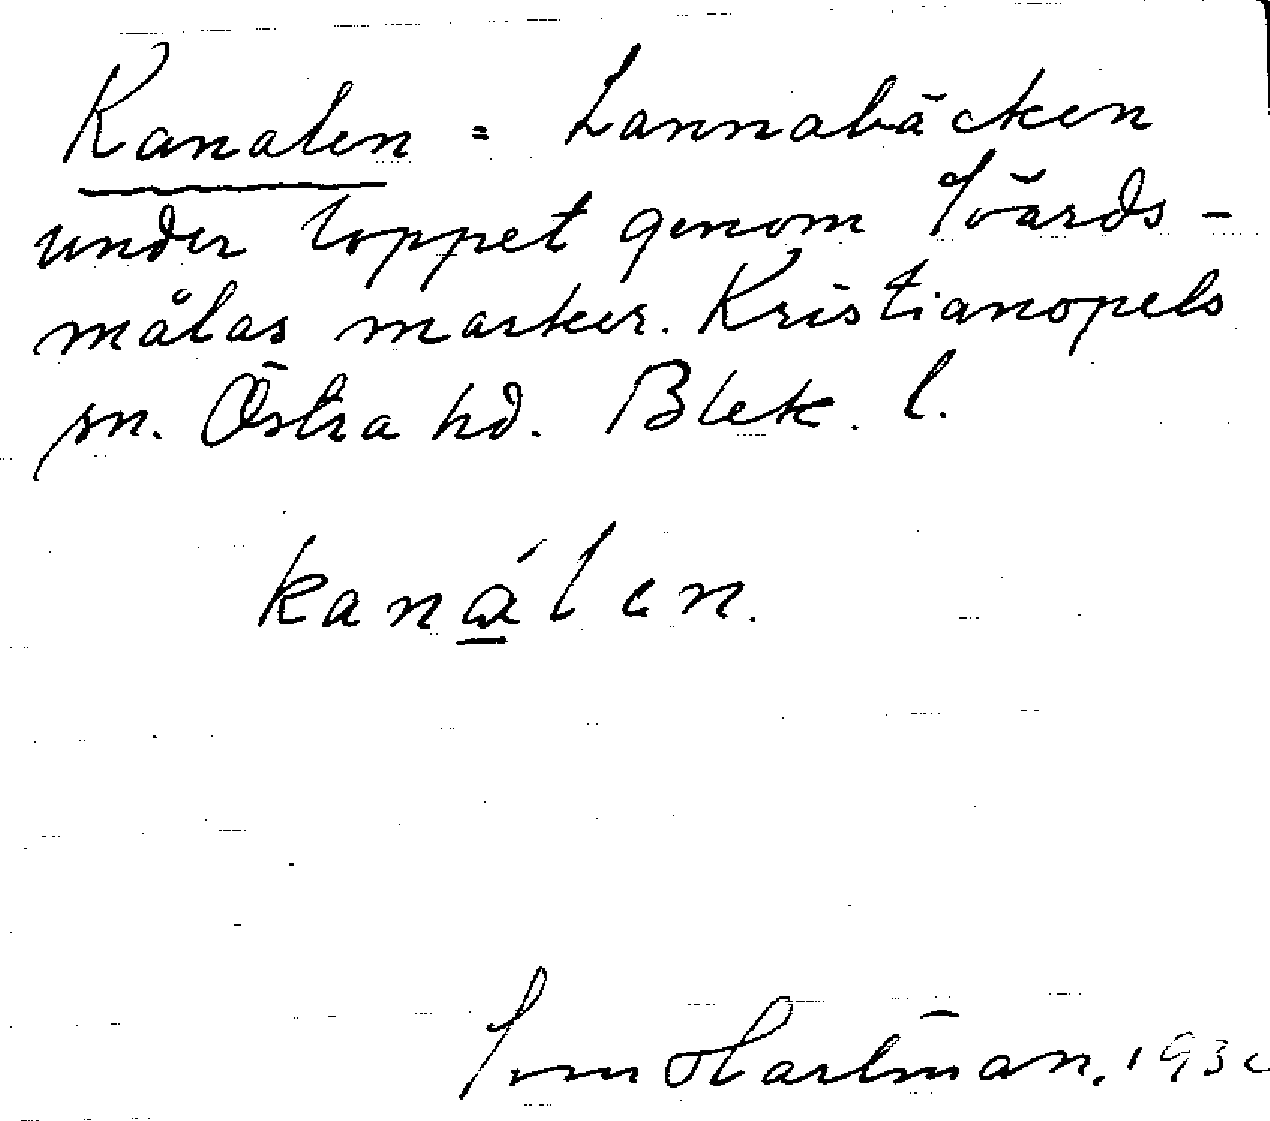 Kanalen = Lannabäcken
under loppet genom Svärds-
målas marker. Kristianopels
sn. Östra hd. Blek. l.
kanálen.
Hartman. 193